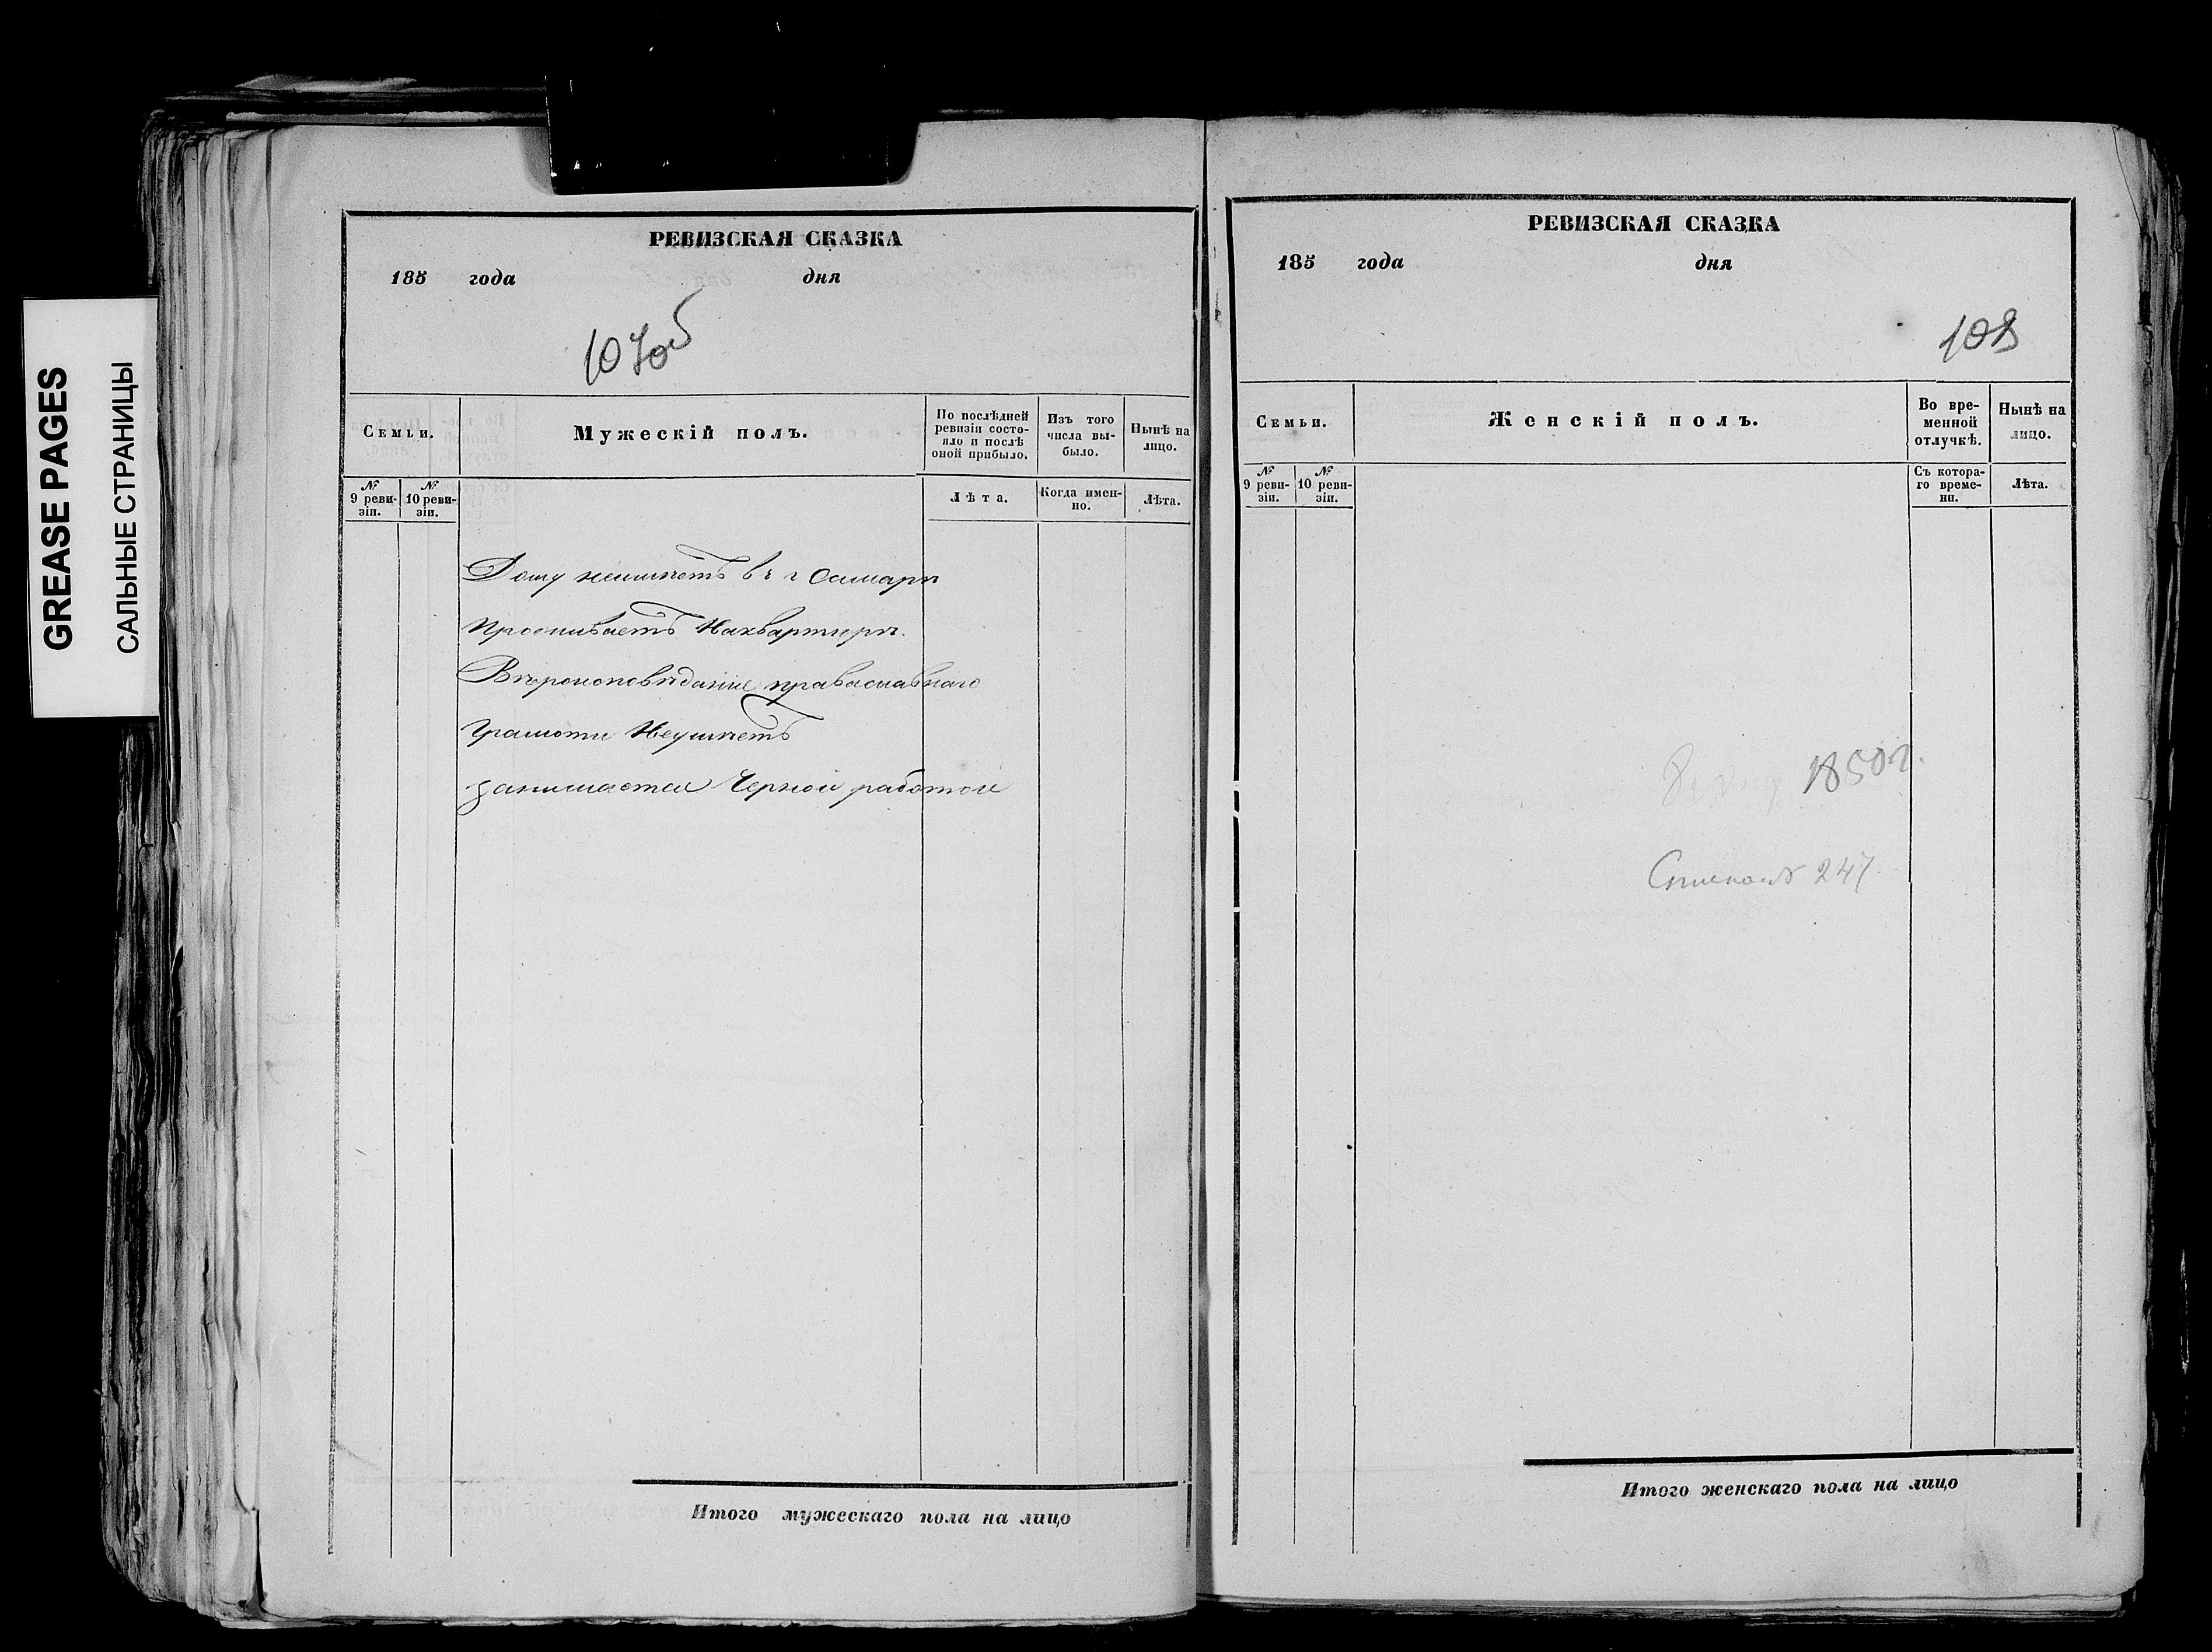 GREASE PAGES
САЛЬНЫЕ СТРАНИЦЫ
РЕВИЗСКАЯ СКАЗКА
185 года дня
107об
Семьи.
Мужескій полъ.
По послѣдней ревизіи состояло и послѣ оной прибыло.
Изъ того числа выбыло.
Нынѣ на лицо.
№ 9 ревизіи.
№ 10 ревизіи.
Лѣта.
Когда именно.
Лѣта.
Дому неимѣетъ въ г Самарѣ
Проживаетъ Наквартирѣ.
Вѣроисповѣданіе православнаго
Грамоти Неумѣетъ
занимается Черной работой
Итого мужескаго пола на лицо
РЕВИЗСКАЯ СКАЗКА
185 года дня
108
Семьи.
Женскій полъ.
Во временной отлучкѣ.
Нынѣ на лицо.
№ 9 ревизіи.
№ 10 ревизіи.
Съ котораго времени.
Лѣта.
1850г.
247
Итого женскаго пола на лицо